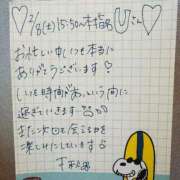 ♡2/8(土)15:50〜本指名Uさん♡
お忙しい中いつも本当に
ありがとうございます♡
いつも時間があっという間に
過ぎていきます
また次回で会える日を
楽しみにしています